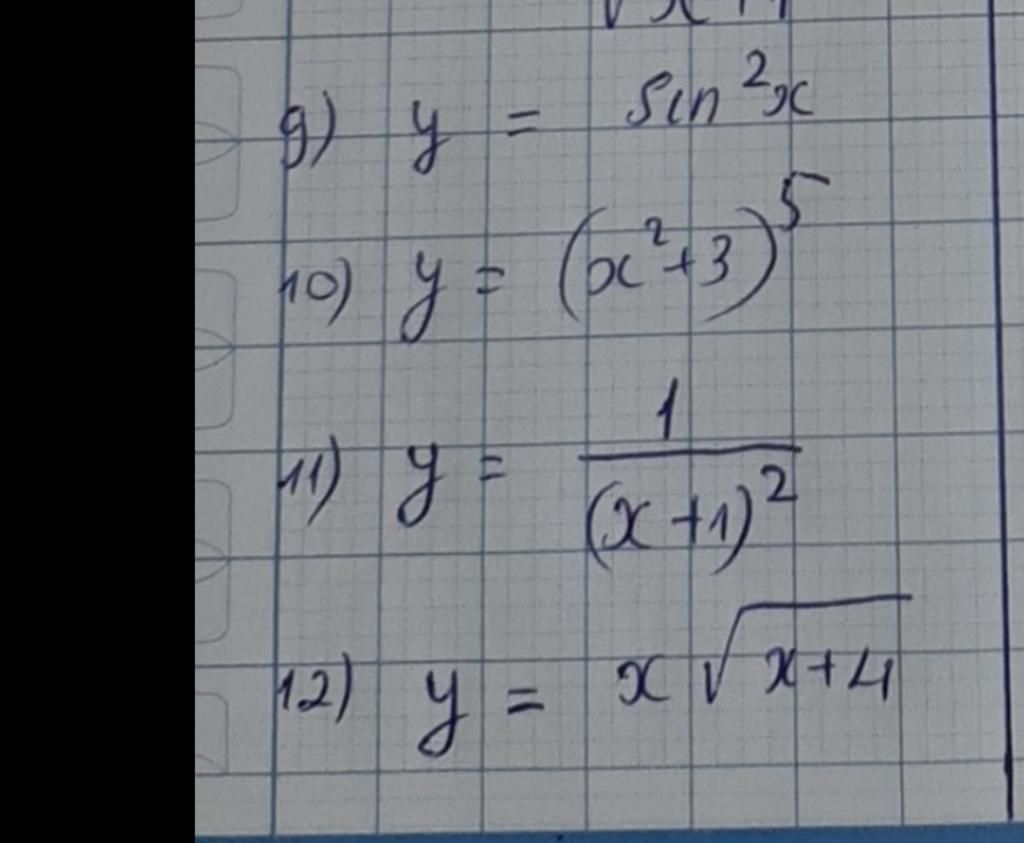 √x+1
9) y = sin²x
10) y = (x²+3)⁵
11) y = 1/(x+1)²
12) y = x√x+4